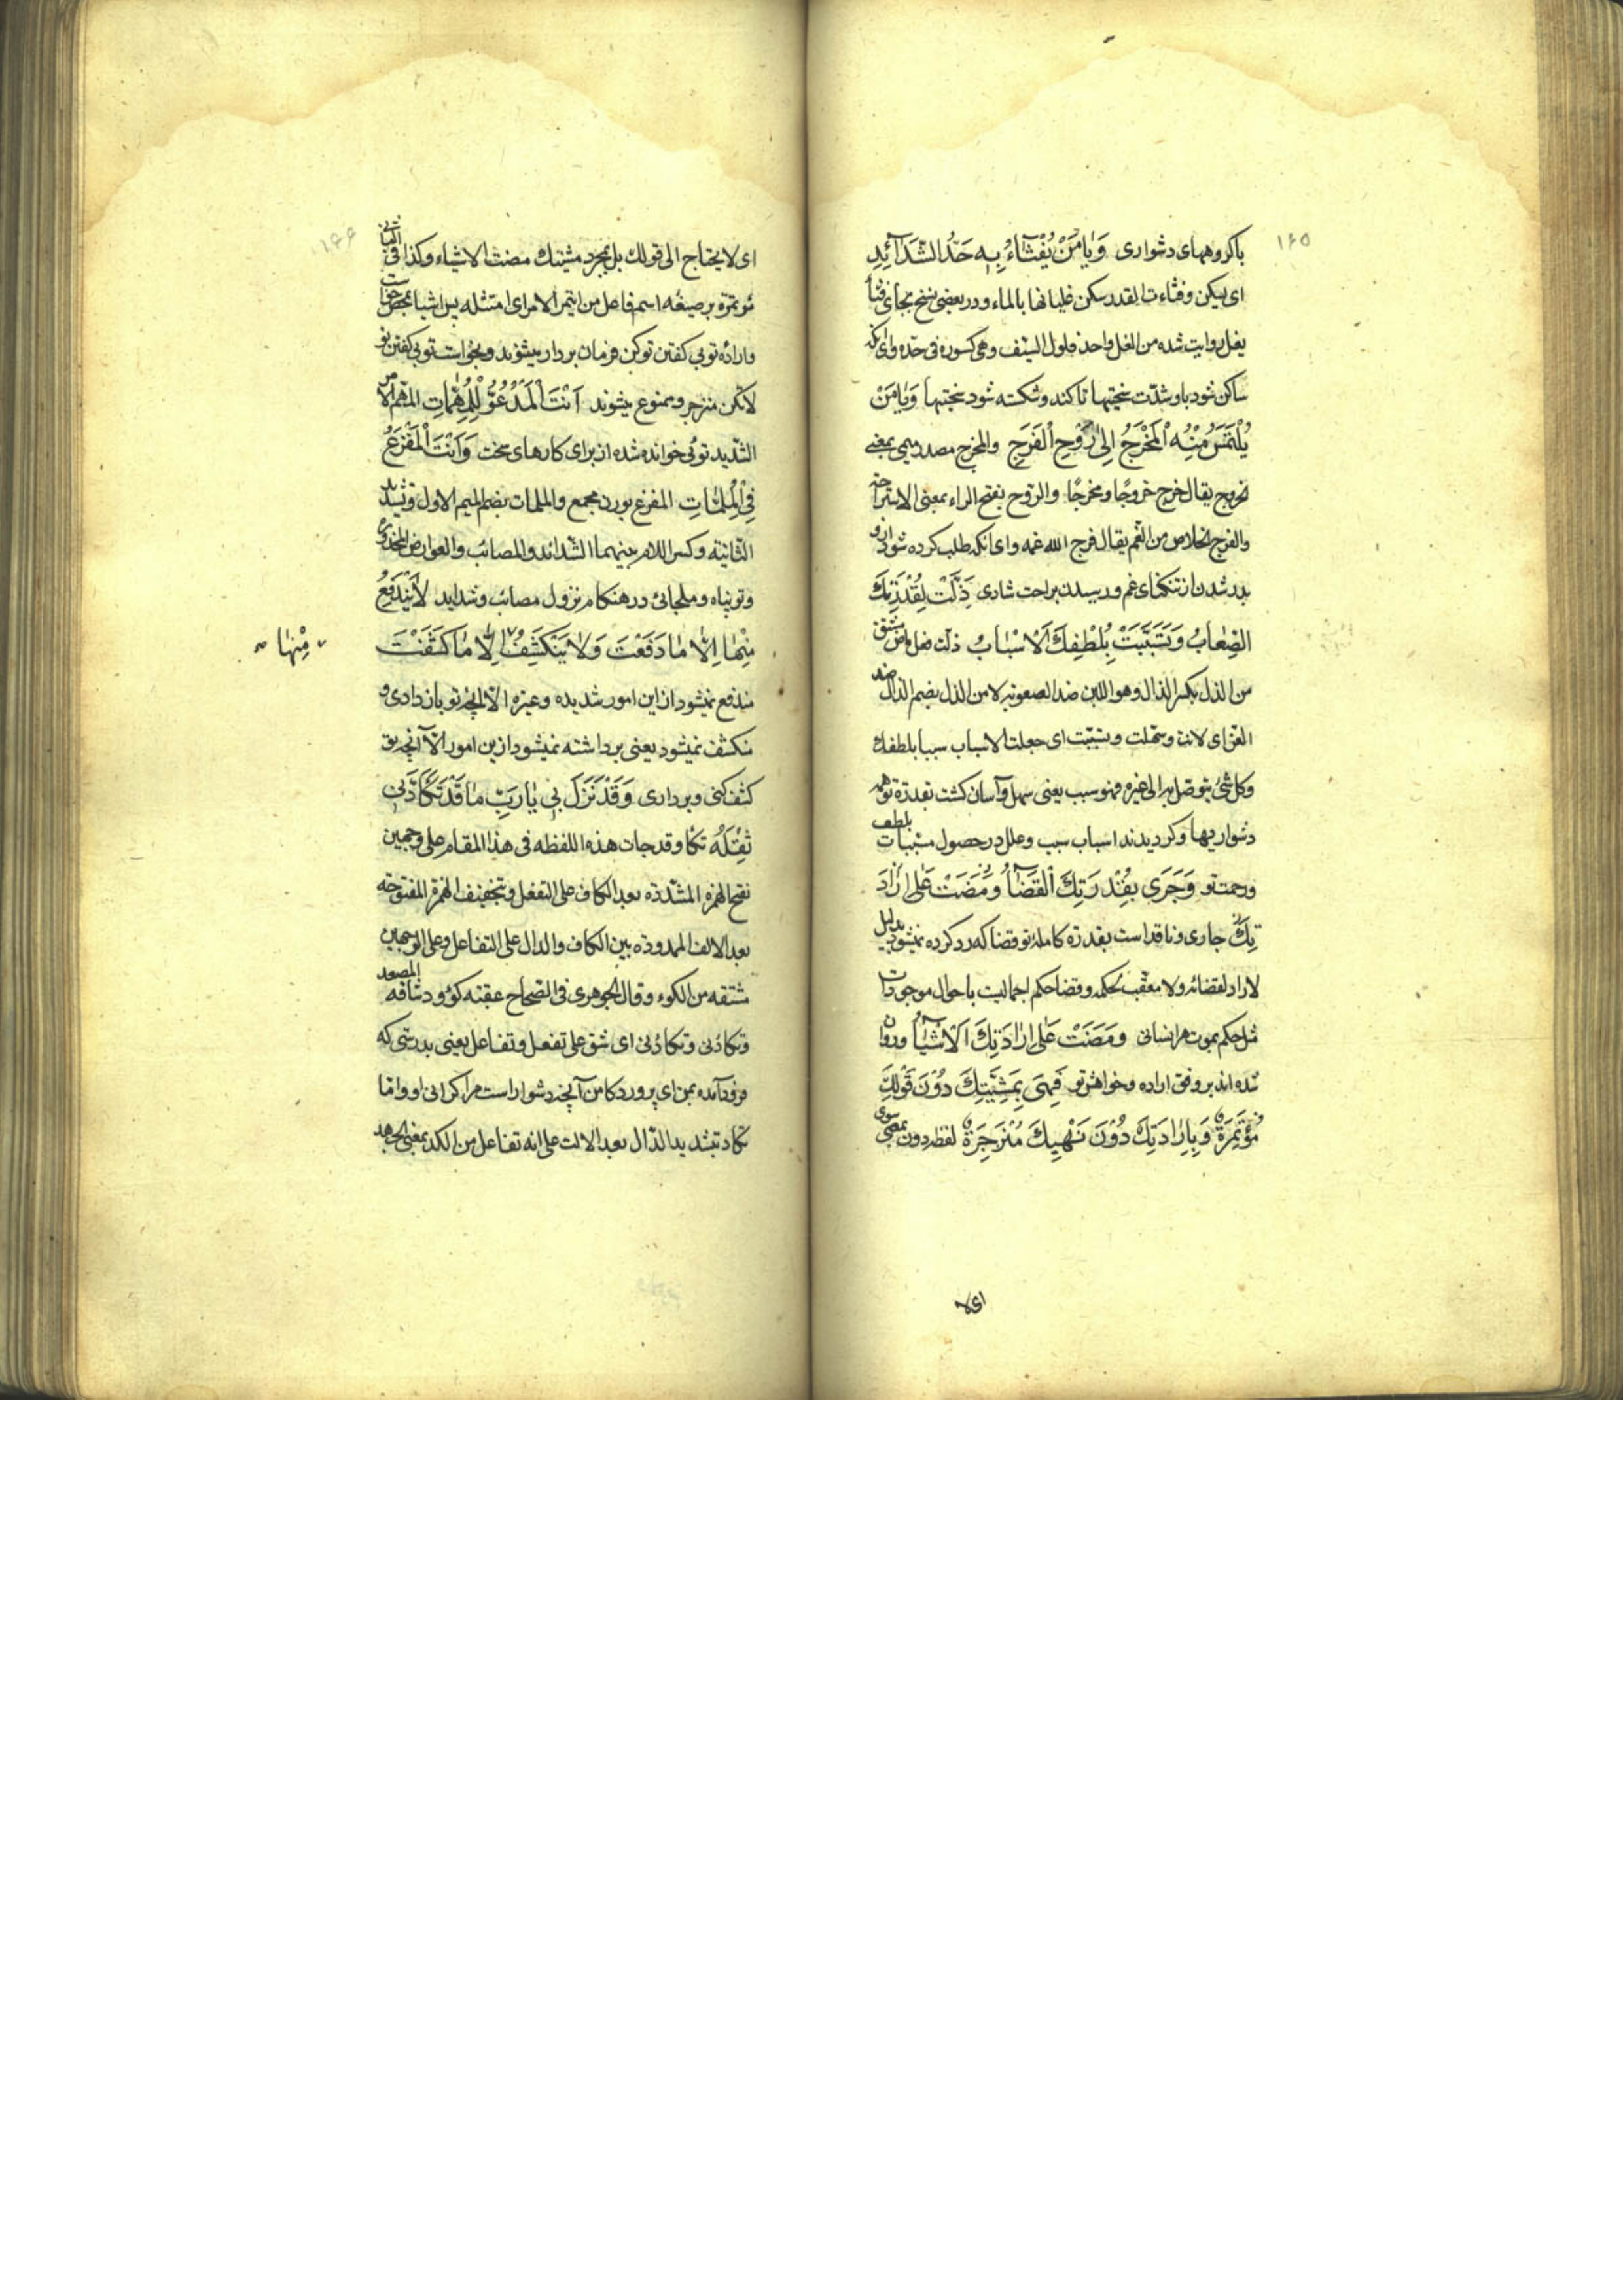 ۱۶۵
باکروههای دشواری وَيَا مَنْ يُفْثَاءُ بِهِ حَدُّ الشَّدَائِدِ
ای یسکن وفثاءت القدر سکن غلیانها بالماء ودر بعضی نسخ بجای یفثأ
یفل روایت شده من الفل واحد فلول السیف وهی کسوره فی حده وای انکه
ساکن شود باو شدّت سختیها تا کند وشکسته شود سختیها وَيَا مَنْ
يُلْتَمَسُ مِنْهُ الْمَخْرَجُ اِلىٰ رَوْحِ الْفَرَجِ والمخرج مصدر میمی بمعنی
لخروج یقال خرج خروجًا ومخرجًا والروح بفتح الراء بمعنی الاستراحة
والفرج الخلاص من الغم یقال فرج الله غمه وای انکه طلب کرده شود ازو
بدر شدن از تنکنای غم ورسیدن براحت شادی ذَلَّتْ لِقُدْرَتِكَ
الصِّعَابُ وَتَسَبَّبَتْ بِلُطْفِكَ الْاَسْبَابُ ذلت فعل ماض مشتق
من الذل بکسر الذال وهو اللین ضد الصعوبة لا من الذل بضم الذال ضد
العز ای لانت وسهلت وتسببت ای جعلت الاسباب سببا بلطفك
وکل شیٔ یتوصل به الی غیره فهو سبب یعنی سهل وآسان کشت بقدرة تو همه
دشواریها وکردیدند اسباب سبب وعلل در حصول مسببات بلطف
ورحمت تو وَجَرَى بِقُدْرَتِكَ الْقَضَاءُ وَمَضَتْ عَلىٰ اِرَادَ
تِكَ جاری ونافذ است بقدرة کامله تو قضا که رد کرده نمیشود بدلیل
لا راد لقضائه ولا معقب لحکمه وقضا حکم اجمالیست باحوال موجودات
مثل حکم بموت هر انسانی وَمَضَتْ عَلىٰ اِرَادَتِكَ الْاَشْيَاءُ وروان
شده اند بر وفق اراده وخواهش تو فَهِيَ بِمَشِيَّتِكَ دُوْنَ قَوْلِكَ
مُؤْتَمِرَةٌ وَبِاِرَادَتِكَ دُوْنَ نَهْيِكَ مُنْزَجِرَةٌ لفظ دون بمعنی سوی
ای لا
۱۶۶
ای لا یحتاج الی قولك بل بمجرد مشیتك مضت الاشیاء وکذا فی الثانی
مؤتمرة بر صیغه اسم فاعل من ایتمر الامر ای امتثله پس اشیا بمحض خواست
واراده تو بی کفتن تو کن فرمان بردار میشوند وبخواست تو بی کفتن تو
لا تکن منزجر وممنوع میشوند اَنْتَ الْمَدْعُوُّ لِلْمُهِمَّاتِ المهم الامر
الشدید توئی خوانده شده از برای کارهای سخت وَاَنْتَ الْمَفْزَعُ
فِي الْمُلِمَّاتِ المفزع بوزن مجمع والملمات بضم المیم الاول وتشدید
الثانیة وکسر اللام بینهما الشدائد والمصائب والعوارض
وتو پناه وملجائی در هنکام نزول مصائب وشداید لَا يَنْدَفِعُ
مِنْهَا اِلَّا مَا دَفَعْتَ وَلَا يَنْكَشِفُ اِلَّا مَا كَشَفْتَ
مِنْهَا
مندفع نمیشود از این امور شدیده وغیره الا آنچه تو باز داری و
منکشف نمیشود یعنی برداشته نمیشود ازین امور الا آنچه تو
کشف کنی وبرداری وَقَدْ نَزَلَ بِي يَا رَبِّ مَا قَدْ تَكَأَّدَنِي
ثِقْلُهُ تکأد وقد جاءت هذه اللفظه فی هذا المقام علی وجهین
بفتح الهمزه المشددة بعد الکاف علی التفعل وتخفیف الهمزة المفتوحة
بعد الالف الممدوده بین الکاف والدال علی التفاعل وعلی الوجهین
مشتقه من الکوء وقال الجوهری فی الصحاح عقبة کؤود شاقة المصعد
وتکأدنی وتکاءدنی ای شق علی تفعل وتفاعل یعنی بدرستی که
فرود آمده بمن ای پروردکار من آنچه دشوار است مرا کرانی او واما
تکاد بتشدید الدال بعد الالف علی انه تفاعل من الکد بمعنی الجهد